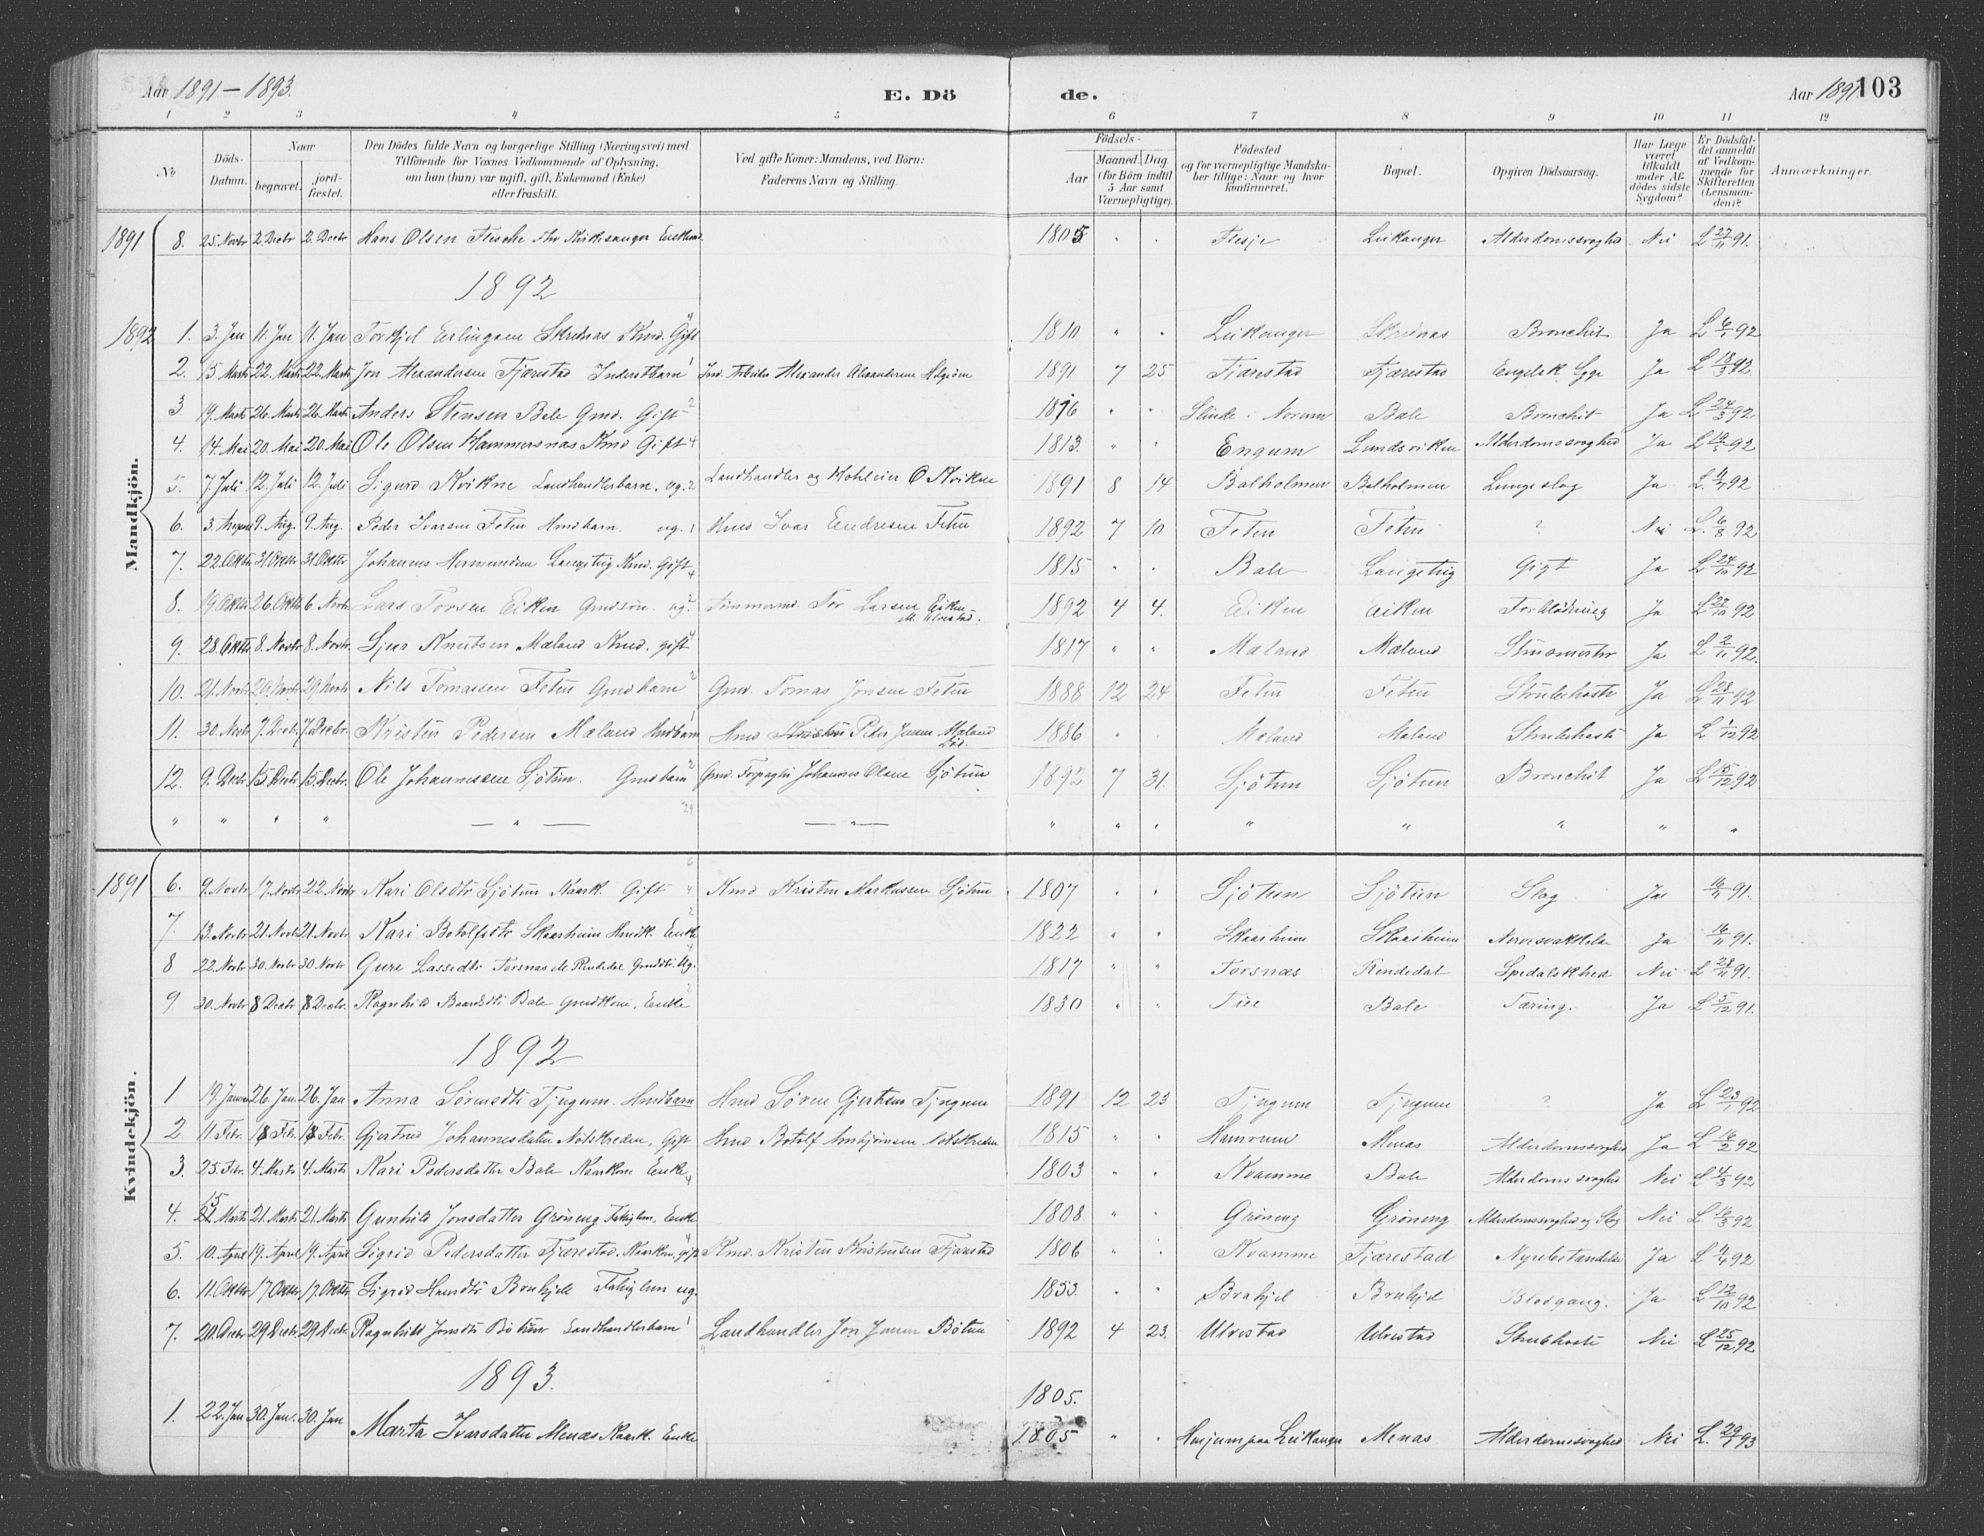 Aar 1891–1893. E. Dö de. Aar 1891 103
1 2 3 4 5 6 7 8 9 10 11 12
No
Döds-Datum.
Naar
begravet.
jordfæstet.
Den Dödes fulde Navn og borgerlige Stilling (Næringsvei) med
Tilföiende for Voxnes Vedkommende af Oplysning,
om han (hun) var ugift, gift, Enkemand (Enke)
eller fraskilt.
Ved gifte Koner: Mandens, ved Börn:
Faderens Navn og Stilling.
Födsels-
Aar
Maaned. Dag
(for Börn indtil
5 Aar samt
Værnepligtige).
Födested
og for værnepligtige Mandskaber tillige: Naar og hvor
konfirmeret.
Bopæl.
Opgiven Dödsaarsag.
Har Læge
været
tilkaldt
under Afdödes sidste
Sygdom?
Er Dödsfaldet anmeldt
af Vedkommende for
Skifteretten
(Lensmanden)?
Anmærkninger.
Mandkjön.
1891 8. 25. Novbr 2. Decbr 2. Decbr Hans Olsen Flesche fhv Kirkesanger Enkemd. 1805 " " Flesje Leikanger Alderdomssvaghed Nei L 27/11 91.
1892
1892 1. 3. Jan 11. Jan 11. Jan Torkjel Erlingsen Skrednas Kmd. Gift 1810 " " Leikanger Skrednas Bronchit Ja L 6/1 92
2. 15 Marts 22. Marts 22. Marts Jon Alexandersen Fjærestad Inderstbarn Ind. Arbeider Alexander Alexandersen 1891 7 25 Fjærestad Fjærestad Engelsk Syge Ja L 18/3 92
3. 19. Marts 26. Marts 26. Marts Anders Stensen Bale Gmd. Gift 1816 " " Slinde i Norum Bale Bronchit Ja L 24/3 92
4. 14. Mai 20. Mai 20. Mai Ole Olsen Hammersnas Kmd Gift 1813. " " Engum Lundsviken Alderdomssvaghed Ja L 92
5. 7 Juli 12. Juli 12. Juli Sigurd Kvikne Landhandlerbarn. ug. Landhandler og O Kvikne 1891 8 14 Balholmen Balholmen Lungeslag Ja L. 92
6. 3. August 9. Aug. 9. Aug. Peder Ivarsen Feten Hmdbarn. ug. Hmd Ivar Endresen Feten 1892 7 10 Feten Feten ? Nei L. 6/8 92
7. 22. Oktbr 31. Oktbr 31. Oktbr Johannes Hermundsen Langeteig Kmd. Gift 1815 " " Bale Langeteig Gigt Ja L 24/10 92
8. 19. Oktbr 26. Oktbr 6. Novbr. Lars Torsen Eiken Gmdsön. ug. Tömmermd. Tor Larsen Eiken 1892 4 4. Eiken Eiken Forblödning Ja L 27/10 92
9. 28. Oktbr 8. Novbr 8. Novbr. Sjur Knutsen Mæland Kmd. gift 1817 " " Mæland Mæland Ja L 2/11 92.
10. 21. Novbr 29. Novbr 29. Novbr Nils Tomassen Feten Gmdbarn Gmd. Tomas Jonsen Feten 1888 12 24 Feten Feten Strubehoste Ja L 28/11 92
11. 30. Novbr 7. Decbr. 7. Decbr. Kristen Pedersen Mæland Hmdbarn Hmd Kristen Peder Jensen Mæland 1886 " Mæland Mæland Strubehoste Ja L 1/12 92
12. 9. Decbr 15. Decbr 15. Decbr. Ole Johannessen Sjötun. Gmdbarn Gmd. Johannes Olsen Sjötun 1892 7 31. Sjötun Sjötun Bronchit Ja L 15/12 92.
" " " " — " — — " — " " " " " " " "
Kvindekjön.
1891 6. 9. Novbr 17. Novbr 22. Novbr Kari Olsdtr Sjötun Kaark. Gift Kmd Kristen Markussen Sjötun 1807 " " Sjötun Sjötun Slag Ja 16/11 91.
7. 13. Novbr 21. Novbr 21. Novbr Kari Botolfsdtr Skaasheim Hmdk. Enke 1822 " " Skaasheim Skaasheim Nervesvækkelse Ja 16/11 91.
8 22. Novbr 30. Novbr 30 Novbr Gure Lassedtr Torsnas M. Rendedal Gmdsdtr. ug. 1817 " " Torsnas Rendedal Spedalskhed Nei L 91.
9 30. Novbr 8 Decbr 8 Decbr. Ragnhild Baardsdtr Bale Gmdkone, Enke 1830 " " Bale Tæring. Ja L 5/12 91.
1892
1 19. Januar 26. Jan. 26. Jan Anna Sörensdtr Tjugum. Hmdbarn Hmd Sören Gjertsen Tjugum 1891 12 23 Tjugum Tjugum ? Ja L 23/1 92
2. 11. Febr. 18 Febr. 18 Febr. Gjertrud Johannesdatter Nötskreden. Gift Hmd Botolf Nötskreden 1815 " " Hamrum Menas Alderdomssvaghed Ja L 16/2 92
3. 25. Febr. 4. Marts 4. Marts Kari Pedersdatter Bale Kaarkone Enke 1803 " " Kvamme Bale Alderdomssvaghed Nei L 4/3 92
4. 15 Marts 21. Marts 21. Marts Gunhild Jonsdatter Gröneng Enke 1808 " " Gröneng Gröneng Alderdomssvaghed og Slag Nei L 92
5. 10. April 19. April 19. April Sigrid Pedersdatter Fjærestad, Kaarkone, gift Kmd. Kristen Kristensen Fjærestad 1806 " " Kvamme Fjærestad Nyrebetændelse Ja L 92
6. 11. Oktbr 17 Oktbr 17. Oktbr Sigrid ug. 1853. " " Blodgang. Ja L 12/10 92
7. 20. Decbr 29. Decbr 29. Decbr Ragnhild Jonsdtr Bötun Landhandlerbarn Landhandler Jon Jensen Bötun 1892 4 23. Ulvestad Ulvestad Strubehoste Nei L 25/12 92
1893.
1. 22. Jan 30. Jan. 30. Jan Marita Ivarsdatter Menas Kaark. Enke 1805.
1805 " " Husjum paa Leikanger Menas Alderdomssvaghed Nei L. 29/1 93